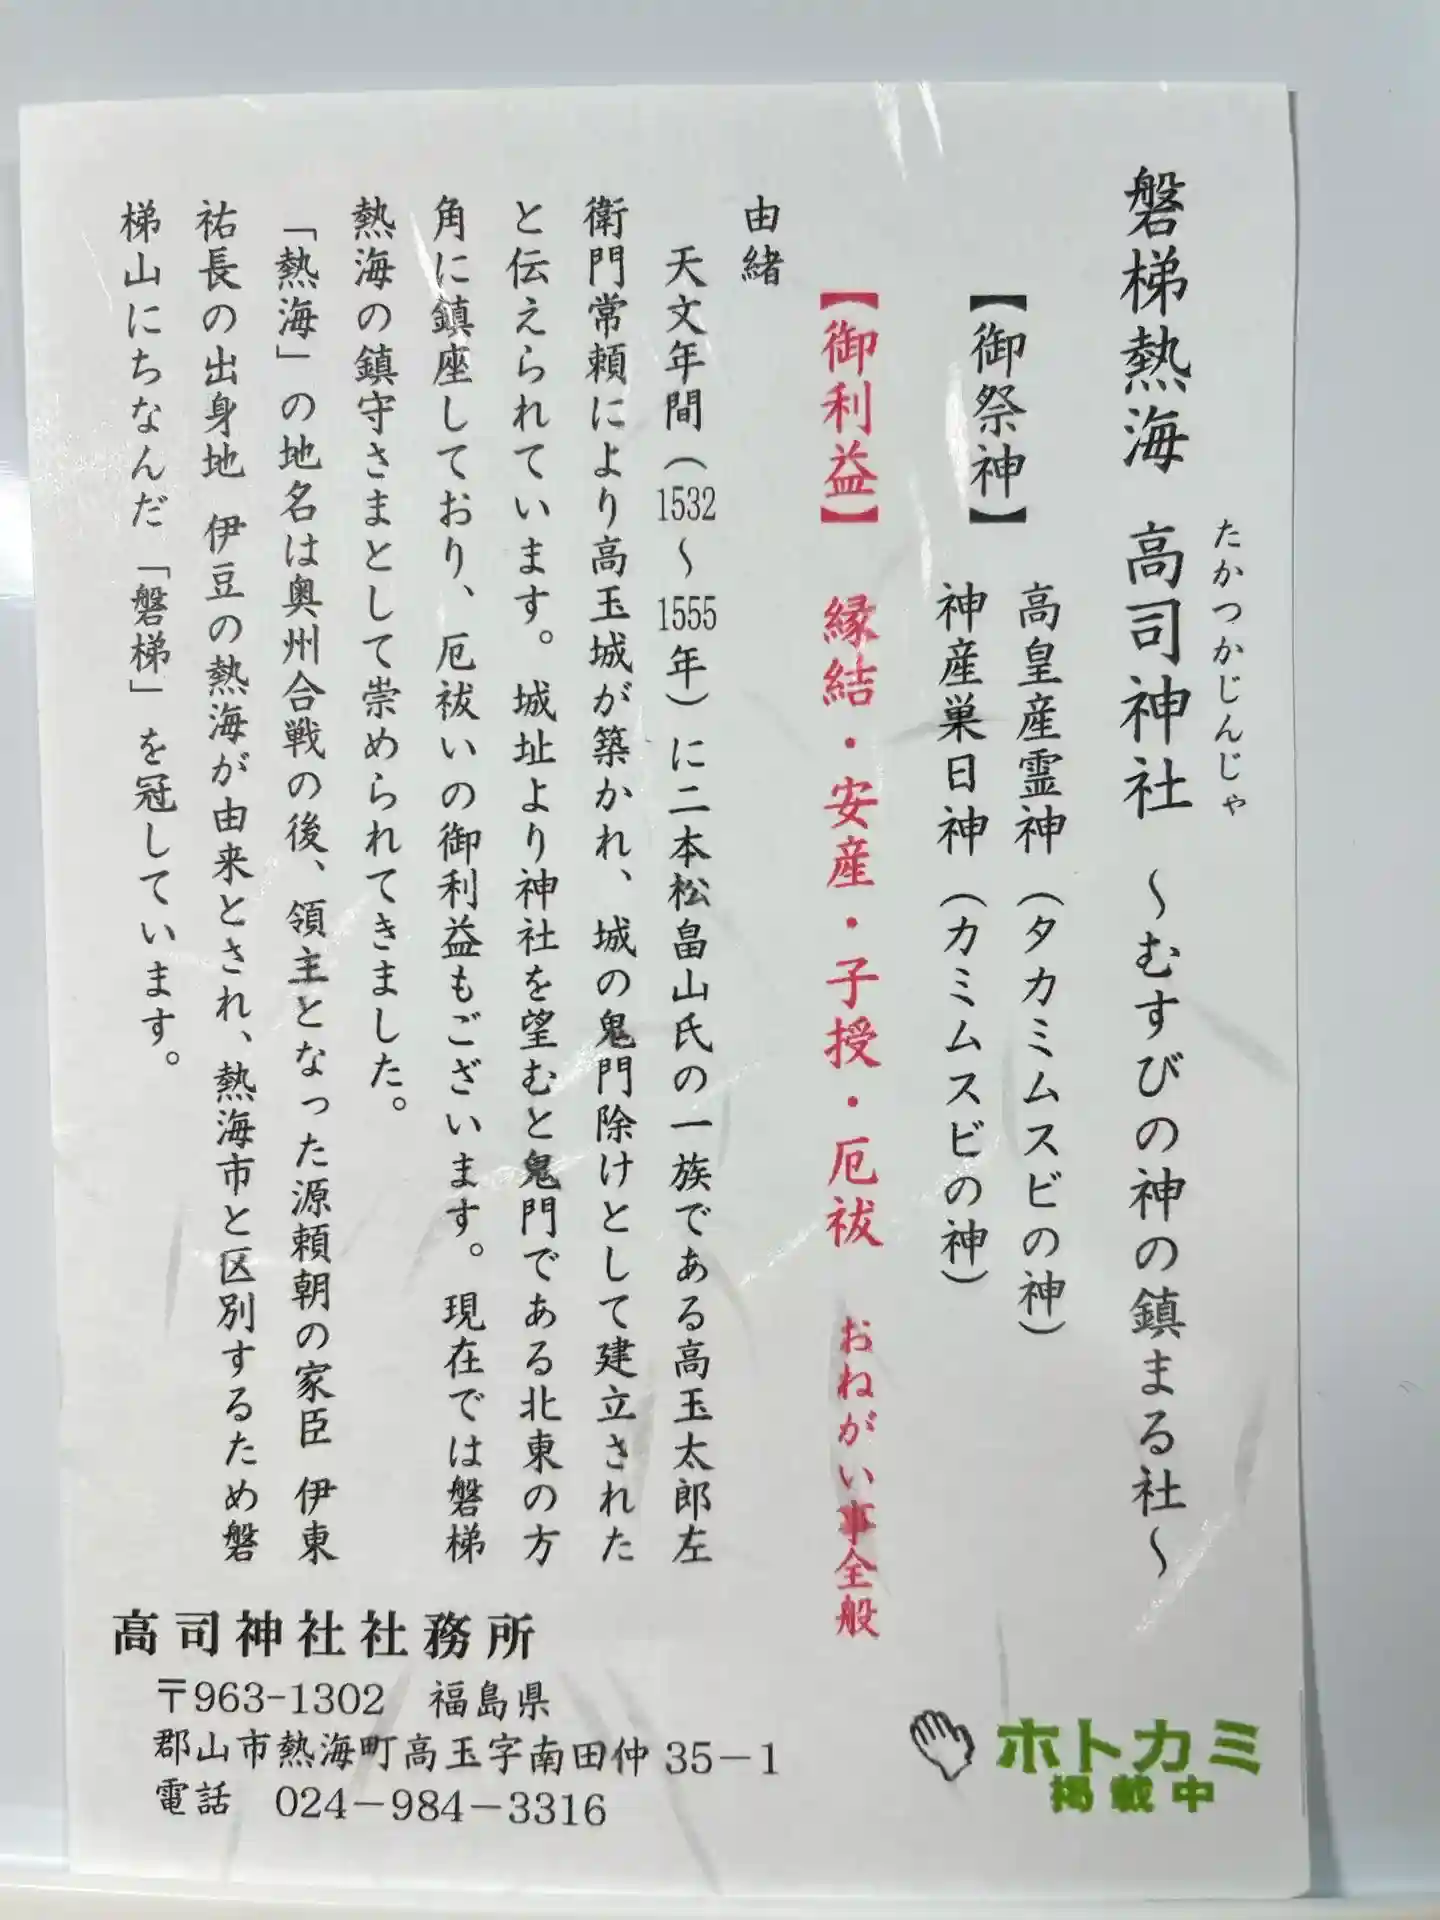 磐梯熱海 高司神社 ～むすびの神の鎮まる社～
たかつかじんじゃ
【御祭神】 高皇産霊神（タカミムスビの神）
神産巣日神（カミムスビの神）
【御利益】 縁結・安産・子授・厄祓 おねがい事全般
由緒
天文年間（1532～1555年）に二本松畠山氏の一族である高玉太郎左
衛門常頼により高玉城が築かれ、城の鬼門除けとして建立された
と伝えられています。城址より神社を望むと鬼門である北東の方
角に鎮座しており、厄祓いの御利益もございます。現在では磐梯
熱海の鎮守さまとして崇められてきました。
「熱海」の地名は奥州合戦の後、領主となった源頼朝の家臣 伊東
祐長の出身地 伊豆の熱海が由来とされ、熱海市と区別するため磐
梯山にちなんだ「磐梯」を冠しています。
高司神社社務所
〒963-1302 福島県
郡山市熱海町高玉字南田仲35－1
電話 024－984－3316
ホトカミ
掲載中